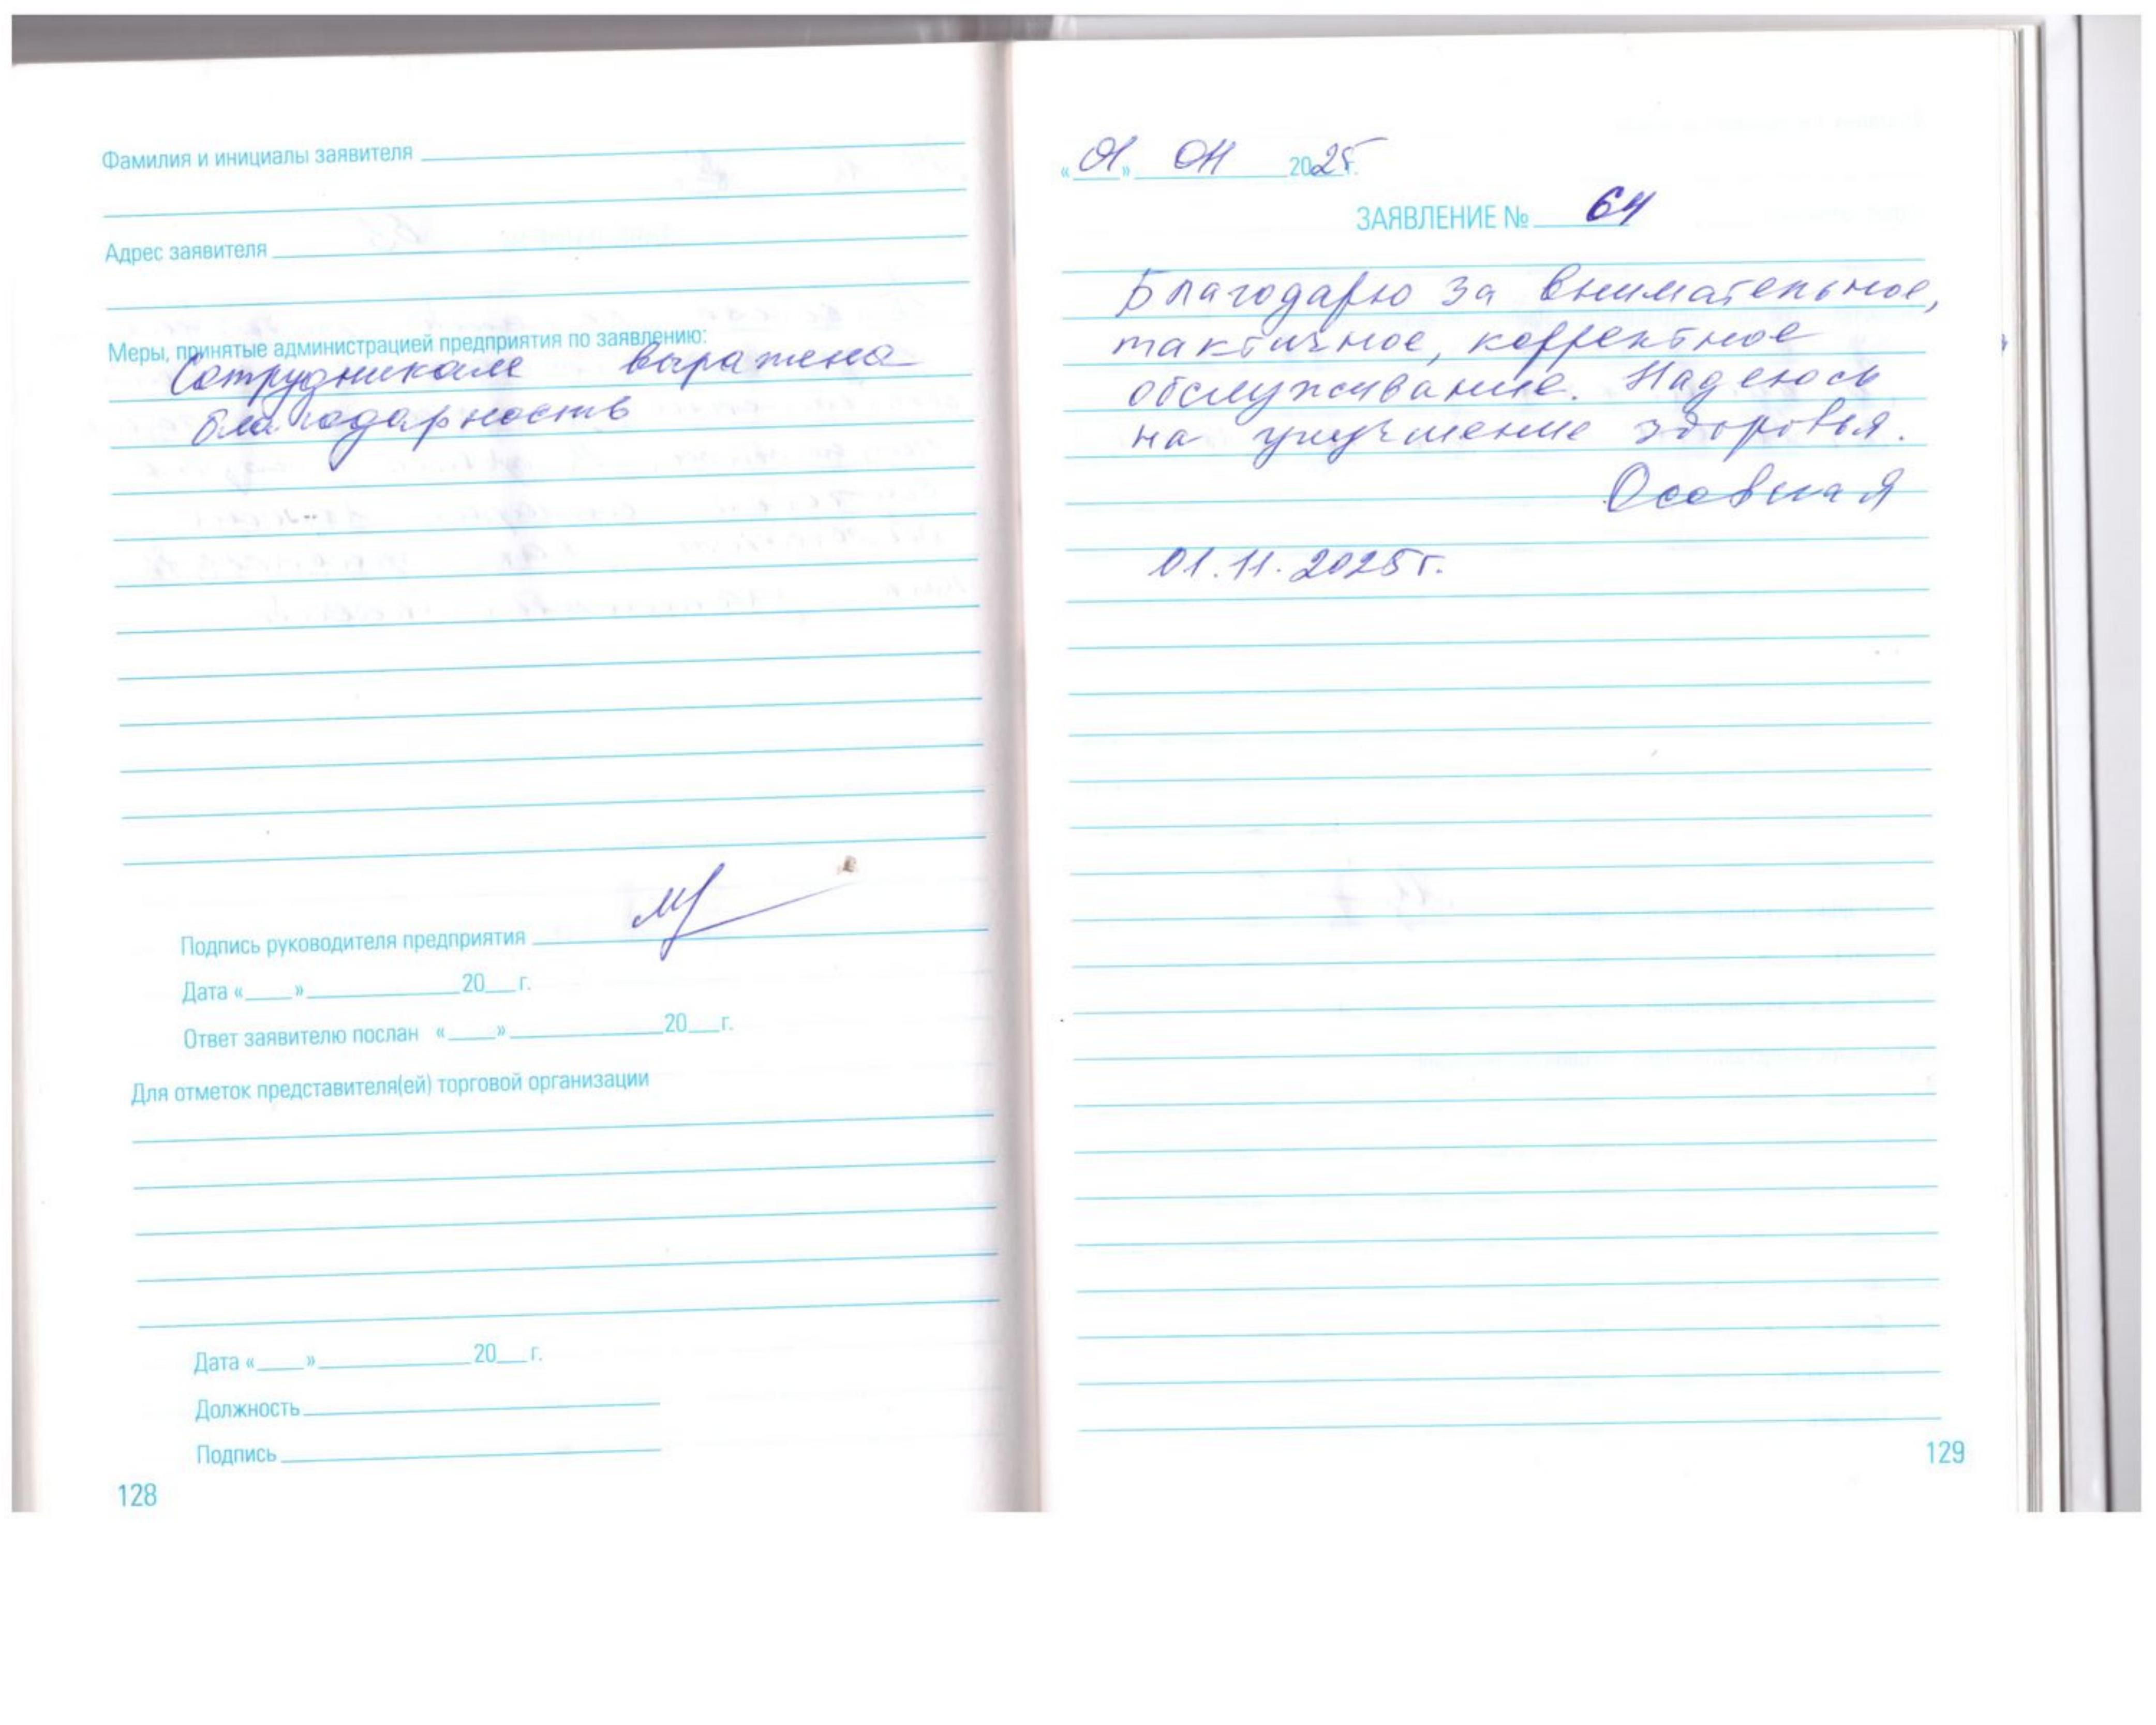 Фамилия и инициалы заявителя
Адрес заявителя
Меры, принятые администрацией предприятия по заявлению:
Сотрудникам выражена
благодарность
Подпись руководителя предприятия
Дата «____»____________20__г.
Ответ заявителю послан «____»____________20__г.
Для отметок представителя(ей) торговой организации
Дата «____»____________20__г.
Должность
Подпись
128
«01» 2025г.
ЗАЯВЛЕНИЕ № 64
Благодарю за внимательное,
тактичное, корректное
обслуживание. Надеюсь
на улучшение здоровья.
01.11.2025г.
129